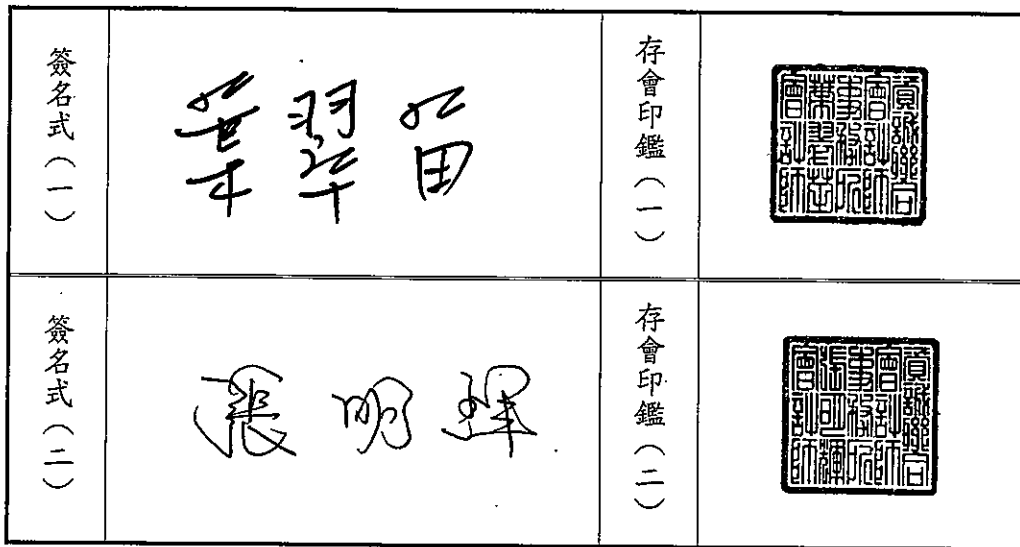 簽名式（一）
葉翠苗
存會印鑑（一）
資誠聯合
會計師
事務所
葉翠苗
會計師
簽名式（二）
張明輝
存會印鑑（二）
資誠聯合
會計師
事務所
張明輝
會計師